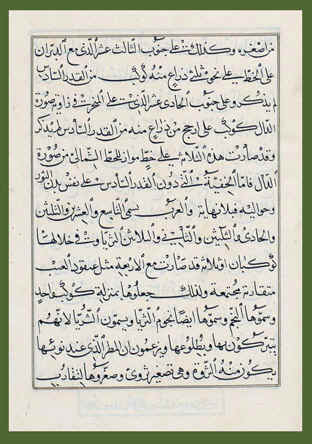 من اصغره وكذلك على جنوب الثالث عشر الذى مع الدبران
على الخط على نحو ثلثى ذراع منه كوكب من القدر السادس
لم يذكر وعلى جنوب الحادى عشر الذى على النحر فى زاوية صورة
الدال كوكب على ارجح من ذراع منه من القدر السادس لم يذكر
وقد صارت هذه الثلاثة على خط مواز للخط الشمالى من صورة
الدال فاما الخفية التى دون القدر السادس على نفس الثور
وحواليه فبلا نهاية والعرب تسمى التاسع والعشرين والثلثين
والحادى والثلثين والثانى والثلاثين الثريا وفى خلالها
كوكبان او ثلاثة قد صارت مع الاربعة مثل عنقود العنب
متقاربة مجتمعة ولذلك جعلوها بمنزلة كوكب واحد
وسموها النجم وسموها ايضا نجوم الثريا ويسمون الثريا لانهم
يتبركون بها وبطلوعها ويزعمون ان المطر الذى عند نوئها
يكون منه الثروة وهى تصغير ثروى وصغروها لتقارب